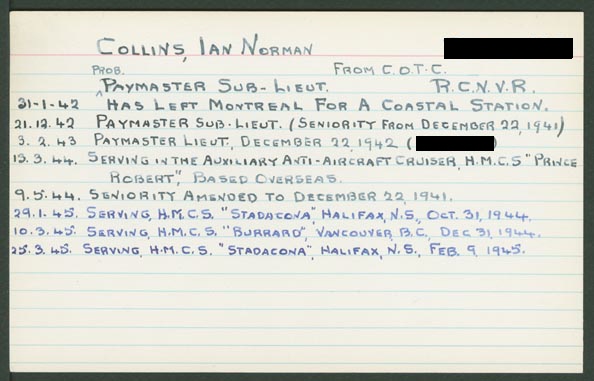 COLLINS, IAN NORMAN
PROB. FROM C.O.T.C.
PAYMASTER SUB-LIEUT. R.C.N.V.R.
31-1-42 HAS LEFT MONTREAL FOR A COASTAL STATION.
21.12.42 PAYMASTER SUB-LIEUT. (SENIORITY FROM DECEMBER 22, 1941)
3.2.43 PAYMASTER LIEUT, DECEMBER 22, 1942 ( )
15.3.44. SERVING IN THE AUXILIARY ANTI-AIRCRAFT CRUISER, H.M.C.S "PRINCE
ROBERT", BASED OVERSEAS.
9.5.44. SENIORITY AMENDED TO DECEMBER 22, 1941.
29.1.45. SERVING, H.M.C.S. "STADACONA", HALIFAX, N.S., OCT. 31, 1944.
10.3.45. SERVING, H.M.C.S. "BURRARD", VANCOUVER, B.C., DEC 31, 1944.
25.3.45. SERVING, H.M.C.S. "STADACONA", HALIFAX, N.S., FEB. 9, 1945.